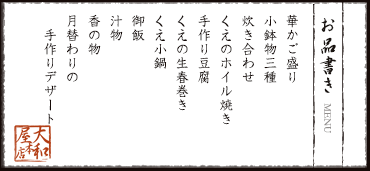 お品書き
MENU
華かご盛り
小鉢物三種
炊き合わせ
くえのホイル焼き
手作り豆腐
くえの生春巻き
くえ小鍋
御飯
汁物
香の物
月替わりの
手作りデザート
大和屋本店